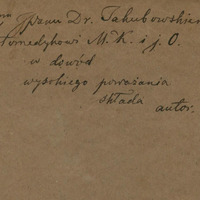 panu Dr. Jakubowskie
M. K. i j. O.
w dowód
wysokiego poważania
składa
autor.